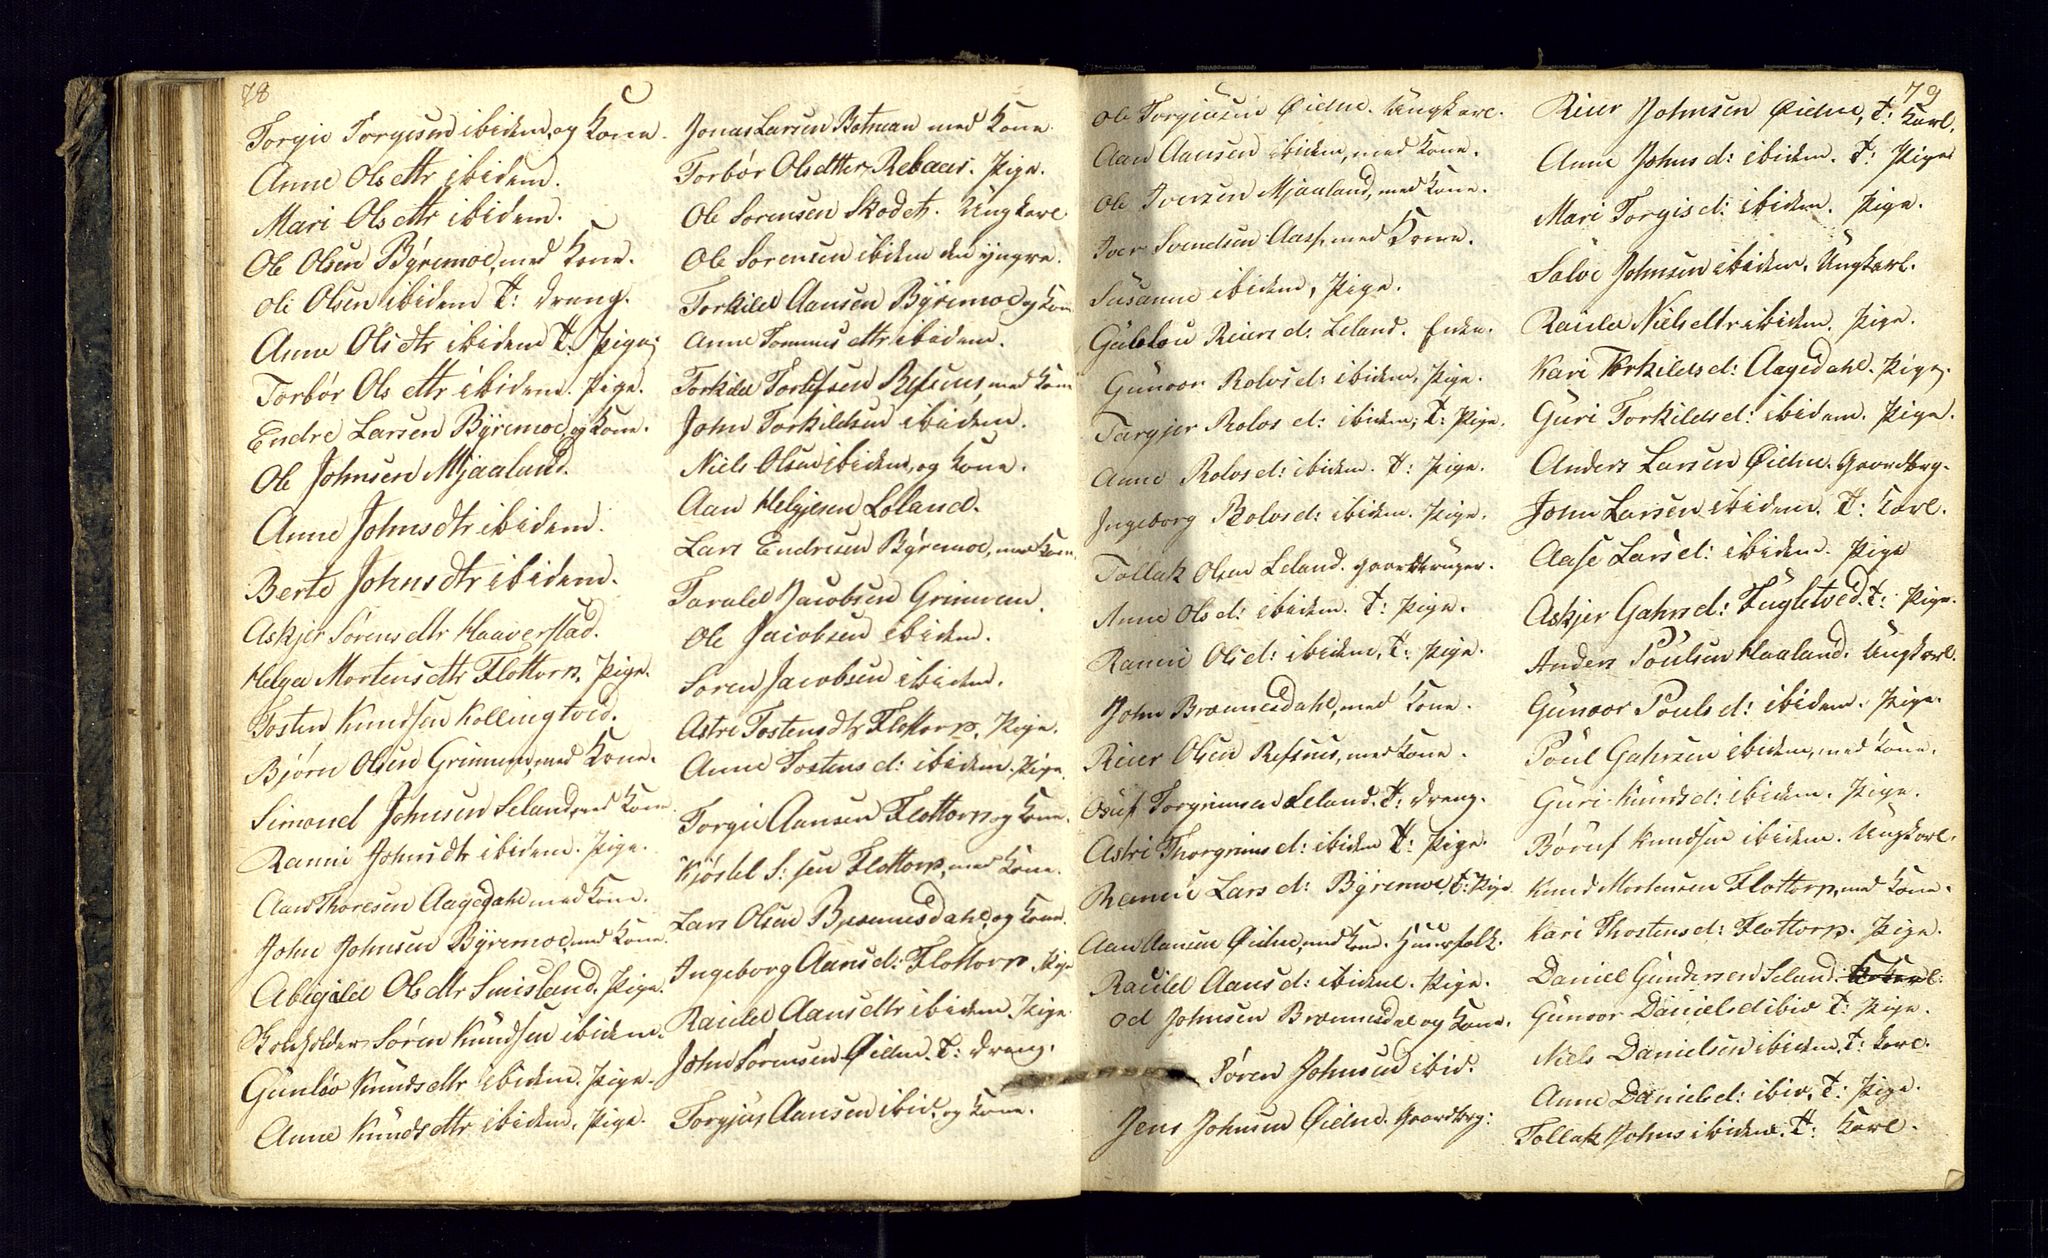 78
Torgie Torgiesen ibidem, og Kone.
Anne Olsdttr ibidem.
Mari Olsdttr ibidem.
Ole Olsen Byremoe, med Kone.
Ole Olsen ibidem T: Dreng.
Anne Olsdtr ibidem T: Pige.
Torbør Olsdttr ibidem. Pige.
Endre Larsen Byremoe, og Kone.
Ole Johnsen Mjaaland.
Anne Johnsdtr ibidem.
Berte Johnsdtr ibidem.
Askjer Sørensdttr Haaverstad.
Helga Mortensdttr Flottorp. Pige.
Tosten Knudsen Kollingtved.
Bjørn Olsen Grimmem, med Kone.
Simonel Johnsen Seland, med Kone.
Ranni Johnsdtr ibidem. Pige.
Aan Thoresen Aagedahl med Kone.
John Johnsen Byremoe, med Kone.
Abigäel Olsdttr Smisland. Pige.
Søren Knudsen ibidem.
Gunløv Knudsdttr ibidem. Pige.
Anne Knudsdttr ibidem. Pige.
Jonas Larsen Botsman med Kone.
Torbør Olsdtter Rebaas. Pige.
Ole Sorensen Skodet. Ungkarl
Ole Sorensen ibidem den yngre.
Torkild Aansen Byremoe og Kone
Anne Tommesdttr ibidem.
Torkild Torkelsen Refsnes, med Kone
John Torkildsen ibidem.
Niels Olsen ibidem, og Kone.
Aan Helgjesen Loland.
Lars Endresen Byremoe, med Kone.
Tarald Jacobsen Grimmem.
Ole Jacobsen ibidem.
Soren Jacobsen ibidem.
Astri Tostensdtr Flottorp. Pige.
Anne Tostensd: ibidem. Pige.
Torgie Aansen Flottorp og Kone.
Kjøstel S:sen Flottorp, med Kone.
Lars Olsen Brømmesdahl, og Kone.
Ingeborg Aansd: Flottorp. Pige
Raild Aansdttr ibidem. Pige
John Sørensen Øidne. T: Dreng.
Torgjus Aansen ibid, og Kone.
79
Ole Torgiusen Øidne. Ungkarl.
Aan Aansen ibidem, med Kone.
Ole Iversen Mjaaland, med Kone.
Iver Svendsen Aas, med Kone.
Susanne ibidem, Pige.
Gunlou Reiersd: Leland. Enke.
Gunvor Rolvsd: ibidem, Pige.
Targjer Rolvsd: ibidem; T: Pige.
Anne Rolvsd: ibidem. T: Pige.
Ingeborg Rolvsd: ibidem. Pige.
Tollak Olsen Leland. Gaardbruger.
Anne Olsd: ibidem. T: Pige.
Ranni Olsd: ibidem. T: Pige.
John Brømmesdahl, med Kone.
Reier Olsen Refsnes, med Kone.
Osuf Torgrimsen Leland. T: Dreng.
Astri Thorgrimsd: ibidem T: Pige.
Ranni Larsd: Byremoe, T: Pige
Aan Aansen Øidne, med Kone. Huusfolk.
Raild Aansd: ibidem. Pige.
Od Johnsen Brømmesdal og Kone.
Søren Johnsen ibid.
Jens Johnsen Øidne. Gaardbrg:
Reier Johnsen Øidne, T: Karl.
Anne Johnsd: ibidem. T: Pige
Mari Torgisd: ibidem. Pige.
Salve Johnsen ibidem. Ungkarl.
Raild Nielsdttr ibidem. Pige.
Kari Torkildsd: Aagedahl. Pige.
Guri Torkildsd: ibidem. Pige.
Anders Larsen Øidne. Gaardbrg.
John Larsen ibidem. T: Karl.
Aase Larsd: ibidem. Pige
Askjer Gahrsd: Fugletved. T: Pige.
Anders Poulsen Haaland. Ungkarl.
Gunvor Poulsd: ibidem. Pige.
Poul Gahrsen ibidem, med Kone.
Guri Knudsd: ibidem. Pige.
Børuf Knudsen ibidem. Ungkarl.
Knud Mortensen Flottorp, med Kone.
Kari Thostensd: Flottorp. Pige.
Daniel Gundersen Seland.
Gunvor Danielsd ibid T: Pige.
Niels Danielsen ibidem. T: Karl.
Anne Danielsd: ibid, T: Pige.
Tollak Johns ibidem. T: Karl.